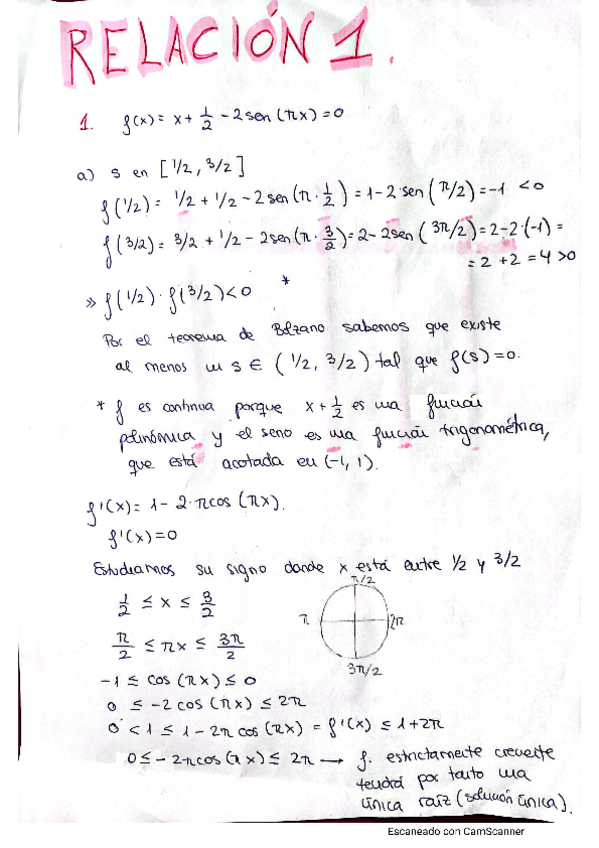 RELACIÓN 1.
1. f(x) = x + 1/2 - 2 sen (πx) = 0
a) s en [1/2, 3/2]
f(1/2) = 1/2 + 1/2 - 2 sen (π · 1/2) = 1 - 2 · sen (π/2) = -1 < 0
f(3/2) = 3/2 + 1/2 - 2 sen (π · 3/2) = 2 - 2 sen (3π/2) = 2 - 2 · (-1) =
= 2 + 2 = 4 > 0
» f(1/2) · f(3/2) < 0 *
Por el teorema de Bolzano sabemos que existe
al menos un s ∈ (1/2, 3/2) tal que f(s) = 0.
* f es continua porque x + 1/2 es una función
polinómica y el seno es una función trigonométrica,
que está acotada en (-1, 1).
f'(x) = 1 - 2 · π cos (πx).
f'(x) = 0
Estudiamos su signo donde x está entre 1/2 y 3/2
1/2 ≤ x ≤ 3/2
π/2
π/2 ≤ πx ≤ 3π/2
π 2π
3π/2
-1 ≤ cos (πx) ≤ 0
0 ≤ -2 cos (πx) ≤ 2π
0 < 1 ≤ 1 - 2π cos (πx) = f'(x) ≤ 1 + 2π
0 ≤ -2π cos (πx) ≤ 2π → f. estrictamente creciente
tendrá por tanto una
única raíz (solución única).
Escaneado con CamScanner